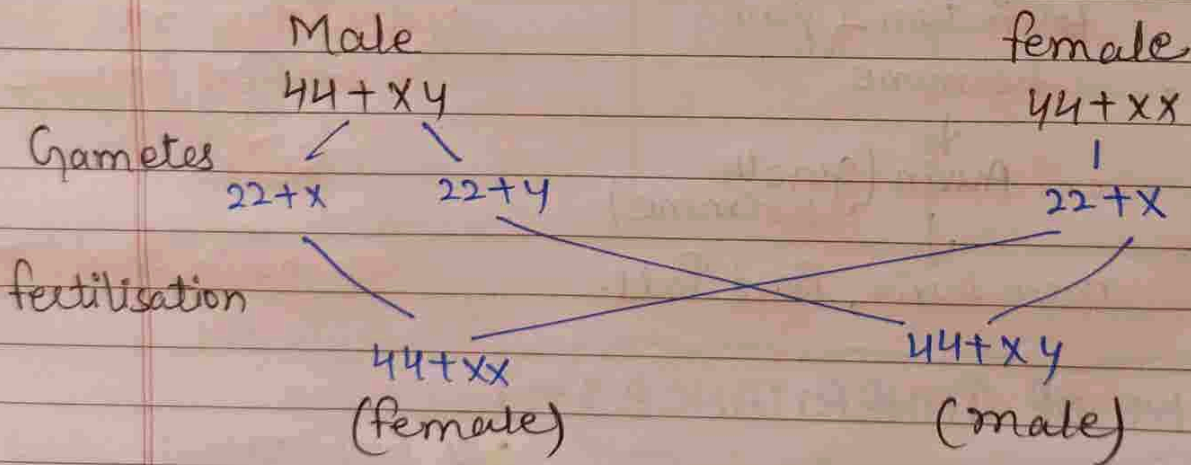 Male female
44+xy 44+xx
Gametes
22+x 22+y 22+x
fertilisation
44+xx 44+xy
(female) (male)